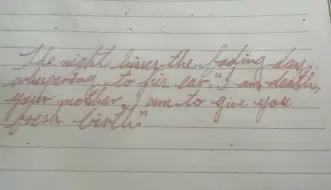 The night kisses the fading day
whispering to his ear, "I am death,
your mother I am to give you
fresh birth."